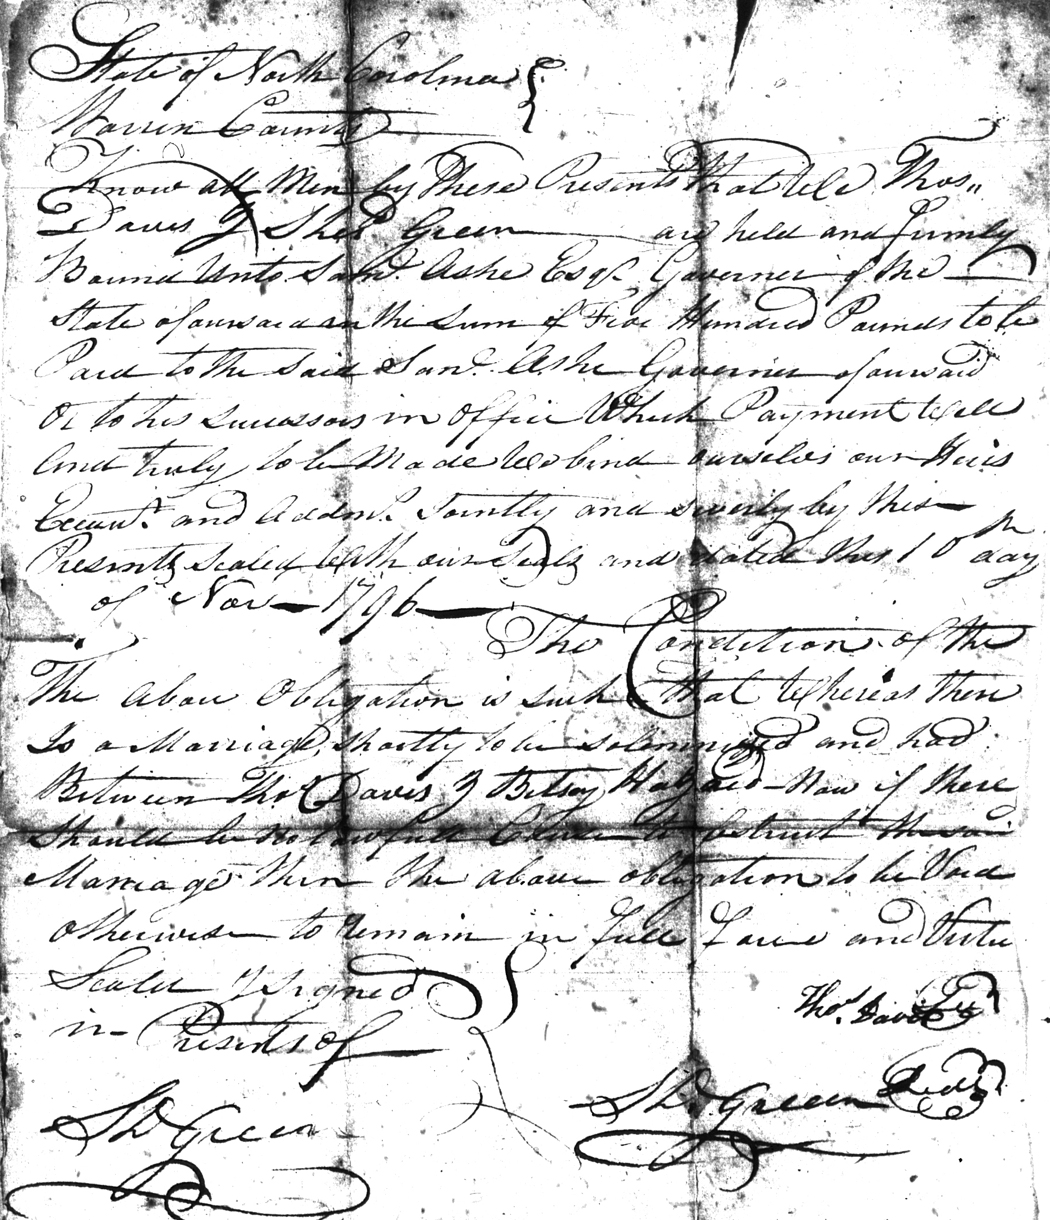 State of North Carolina
Warren County
Know all Men by These Presents That We Thos.
Davis & Shd Green are held and firmly
Bound Unto Saml. Ashe Esqr. Governer of the
State aforesaid in the sum of Five Hundred Pounds to be
Paid to the Said Saml. Ashe Governer aforesaid
Or to his successors in office Which Payment Well
And truly to be Made We bind ourselves our Heirs
and Addmr. Jointly and by this
Presents Sealed With our Seals and dated this 10th day
of Nov 1796
The Condition of the
The Above Obligation is such that Whereas there
Is a Marriage shortly to be and had
Between Thos Davis & Betsey Now if there
Should be No lawfull Cause to obstruct the said
Marriage then the above obligation to be Void
otherwise to remain in full Force and Virtu
Sealed & Signed
in Presents of
Thos. Davis
Shd Green Seal
Shd Green